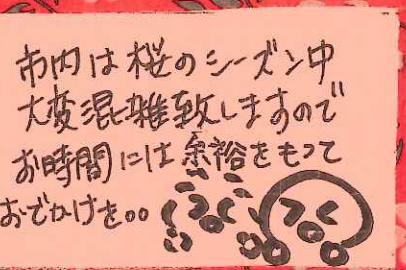 市内は桜のシーズン中
大変混雑致しますので
お時間には余裕をもって
おでかけを。。